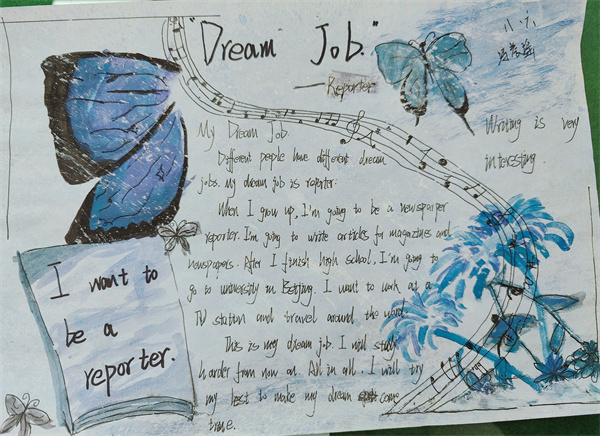 "Dream Job."
—Reporter
八、六
Writing is very
interesting.
My Dream Job
Different people have different dream
jobs. My dream job is reporter.
When I grow up, I'm going to be a newspaper
reporter. I'm going to write articles for magazines and
newspapers. After I finish high school, I'm going to
go to university in Beijing. I want to work at a
TV station and travel around the word.
This is my dream job. I will study
harder from now on. All in all, I will try
my best to make my dream come
true.
I want to
be a
reporter.